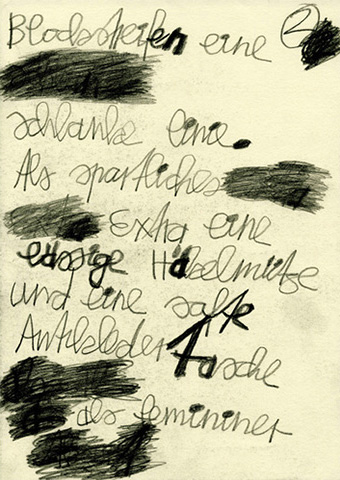 Blockstreifen eine 2
schlanke Linie.
Als sportliches
Extra eine
lässige Häkelmütze
und eine softe
Antikleder Tasche
als femininer